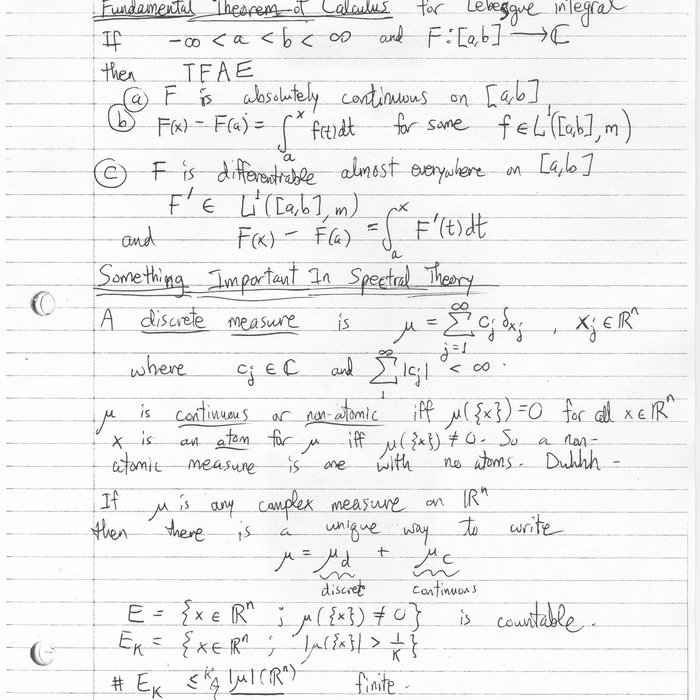 Fundamental Theorem of Calculus for Lebesgue integral
If -∞ < a < b < ∞ and F: [a,b] → ℂ
then TFAE
(a) F is absolutely continuous on [a,b]
(b) F(x) - F(a) = ∫_a^x f(t)dt for some f ∈ L¹([a,b], m)
(c) F is differentiable almost everywhere on [a,b]
F' ∈ L¹([a,b], m)
and F(x) - F(a) = ∫_a^x F'(t)dt
Something Important In Spectral Theory
A discrete measure is μ = Σ_{j=1}^∞ c_j δ_{x_j} , x_j ∈ ℝⁿ
where c_j ∈ ℂ and Σ_1^∞ |c_j| < ∞.
μ is continuous or non-atomic iff μ({x}) = 0 for all x ∈ ℝⁿ
x is an atom for μ iff μ({x}) ≠ 0. So a non-
atomic measure is one with no atoms. Duhhh -
If μ is any complex measure on ℝⁿ
then there is a unique way to write
μ = μ_d + μ_c
discrete continuous
E = {x ∈ ℝⁿ ; μ({x}) ≠ 0} is countable.
E_K = {x ∈ ℝⁿ ; |μ({x}| > 1/K}
# E_K ≤ |μ|(ℝⁿ) finite.